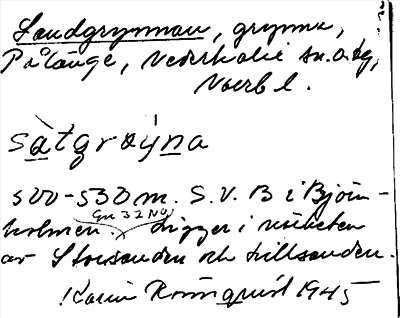 Sandgrynnan, grynna,
Pålänge, Nederkalix sn. o. tg,
Norrb l.
sàtgrøýna
500-530 m. S.V. B i Björn-
holmen. Ligger i närheten
av Storsanden och Lillsanden.
Karin Rönnquist 1945